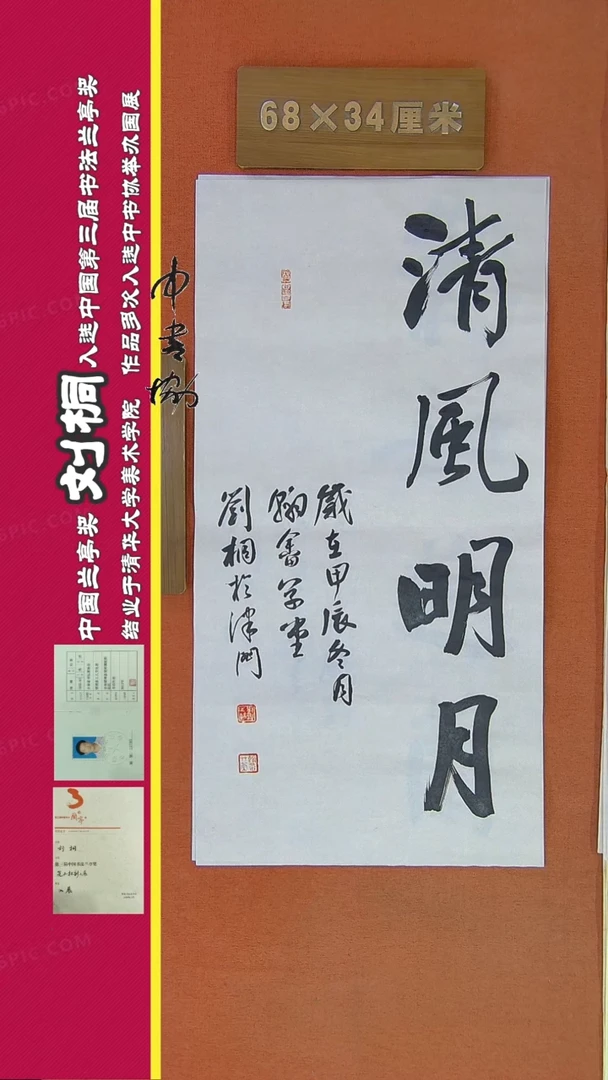 68×34厘米
清風明月
歲在甲辰冬月
翰畬草堂
劉桐於津門
中国兰亭奖 刘桐 入选中国第三届书法兰亭奖
结业于清华大学美术学院 作品多次入选中书协举办国展
中书协